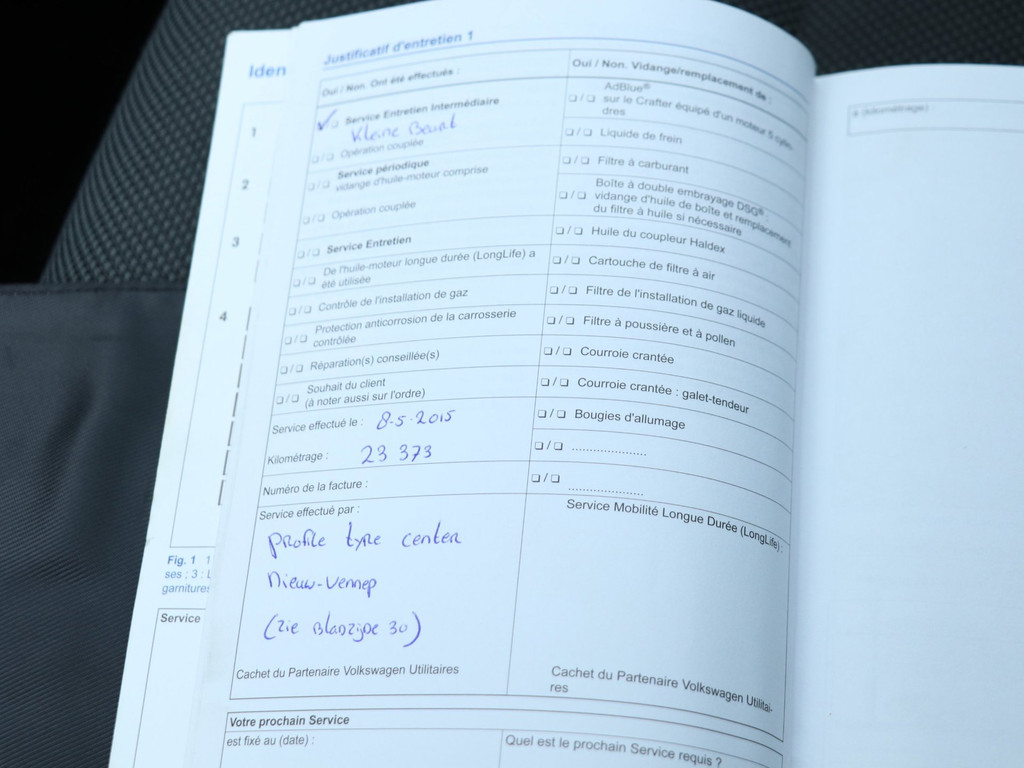 Iden
1
2
3
4
Fig. 1 1
ses ; 3 : L
garnitures
Service
Justificatif d'entretien 1
Oui / Non. Ont été effectués :
✓ Service Entretien Intermédiaire
Kleine Beurt
❑ / ❑ Opération couplée
❑ / ❑ Service périodique
vidange d'huile-moteur comprise
❑ / ❑ Opération couplée
❑ / ❑ Service Entretien
❑ / ❑ De l'huile-moteur longue durée (LongLife) a
été utilisée
❑ / ❑ Contrôle de l'installation de gaz
❑ / ❑ Protection anticorrosion de la carrosserie
contrôlée
❑ / ❑ Réparation(s) conseillée(s)
❑ / ❑ Souhait du client
(à noter aussi sur l'ordre)
Service effectué le : 8-5-2015
Kilométrage : 23 373
Numéro de la facture :
Service effectué par :
Profile tyre center
Nieuw-Vennep
(zie Bladzijde 30)
Cachet du Partenaire Volkswagen Utilitaires
Oui / Non. Vidange/remplacement de :
❑ / ❑ AdBlue®
sur le Crafter équipé d'un moteur 5 cylin-
dres
❑ / ❑ Liquide de frein
❑ / ❑ Filtre à carburant
❑ / ❑ Boîte à double embrayage DSG® :
vidange d'huile de boîte et remplacement
du filtre à huile si nécessaire
❑ / ❑ Huile du coupleur Haldex
❑ / ❑ Cartouche de filtre à air
❑ / ❑ Filtre de l'installation de gaz liquide
❑ / ❑ Filtre à poussière et à pollen
❑ / ❑ Courroie crantée
❑ / ❑ Courroie crantée : galet-tendeur
❑ / ❑ Bougies d'allumage
❑ / ❑ .....................
❑ / ❑ .....................
Service Mobilité Longue Durée (LongLife) :
Cachet du Partenaire Volkswagen Utilitai-
res
Votre prochain Service
est fixé au (date) :
Quel est le prochain Service requis ?
à (kilométrage) :